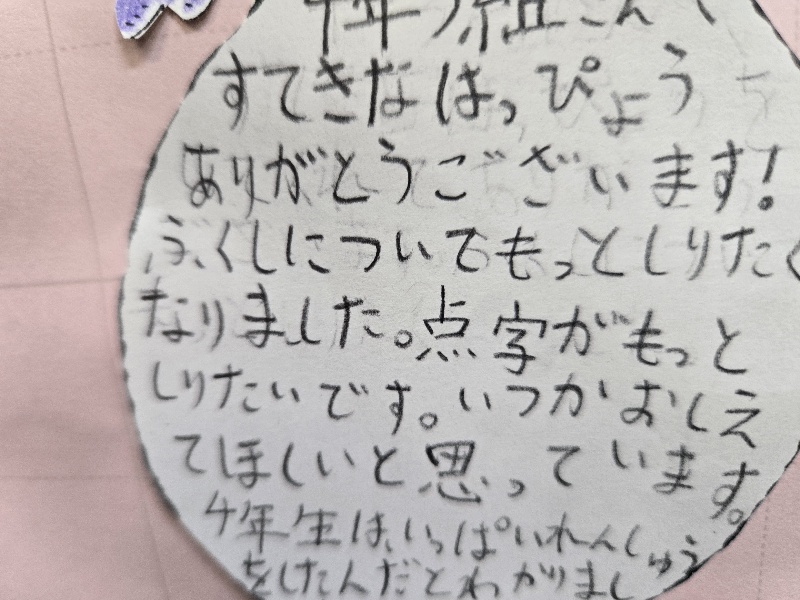 年 組さんへ
すてきなはっぴょう
ありがとうございます!
ふくしについてもっとしりたく
なりました。点字がもっと
しりたいです。いつかおしえ
てほしいと思っています。
4年生は、いっぱいれんしゅう
をしたんだとわかりまし